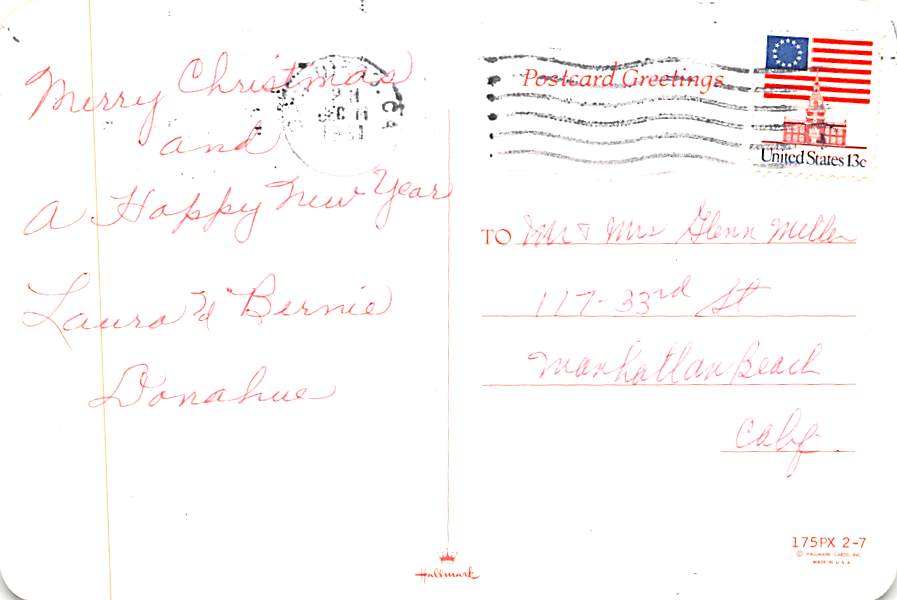 Merry Christmas
and
a Happy New Year
Laura & Bernie
Donahue
Postcard Greetings
United States 13c
TO Mr & Mrs Glenn Miller
117-33rd St
Manhattan Beach
Calif.
175PX 2-7
© HALLMARK CARDS, INC.
MADE IN U.S.A.
Hallmark